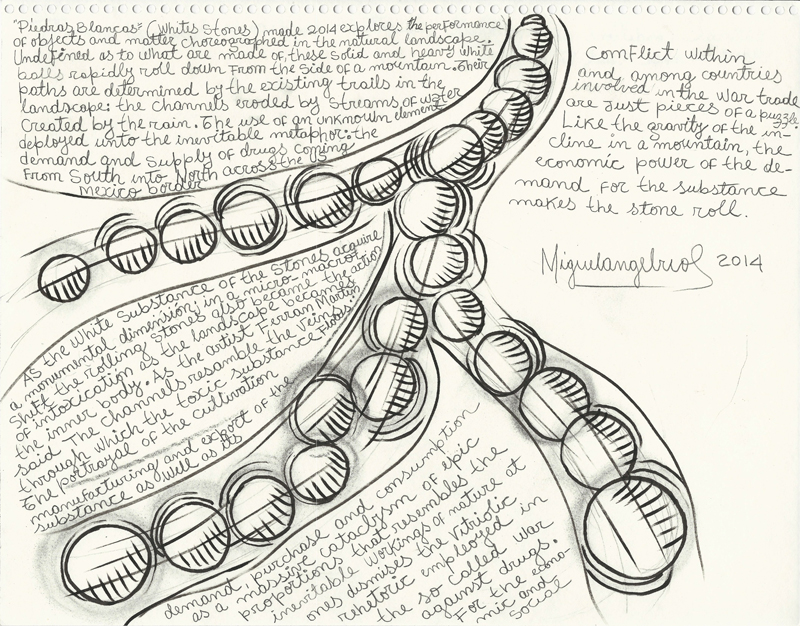 "Piedras Blancas" (Whits Stones) made 2014 explores the performance
of objects and matter choreographed in the natural landscape.
Undefined as to what are made of these solid and heavy white
balls rapidly roll down from the side of a mountain. Their
paths are determined by the existing trails in the
landscape: the channels eroded by streams of water
created by the rain. The use of an unknown element
deployed unto the inevitable metaphor: the
demand and supply of drugs coming
From South into North across the US
Mexico border
As the white substance of the stones acquire
a monumental dimension, in a micro-macro
shift the rolling stones also became the action
of intoxication as the landscape becomes
the inner body. As the artist Ferran Martin
said The channels resemble the veins
through which the toxic substance Floas.
The portrayal of the cultivation
manufacturing and export of the
substance as well as its
demand, purchase and consumption
as a massive cataclysm of epic
proportions that resembles the
inevitable workings of nature at
ones dismises the vitriolic
rhetoric employed in
the so called war
against drugs.
For the econo-
mic and
social
Comflict within
and among countries
involved in the war trade
are just pieces of a puzzle.
Like the gravity of the in-
cline in a mountain, the
economic power of the de-
mand for the substance
makes the stone roll.
2014